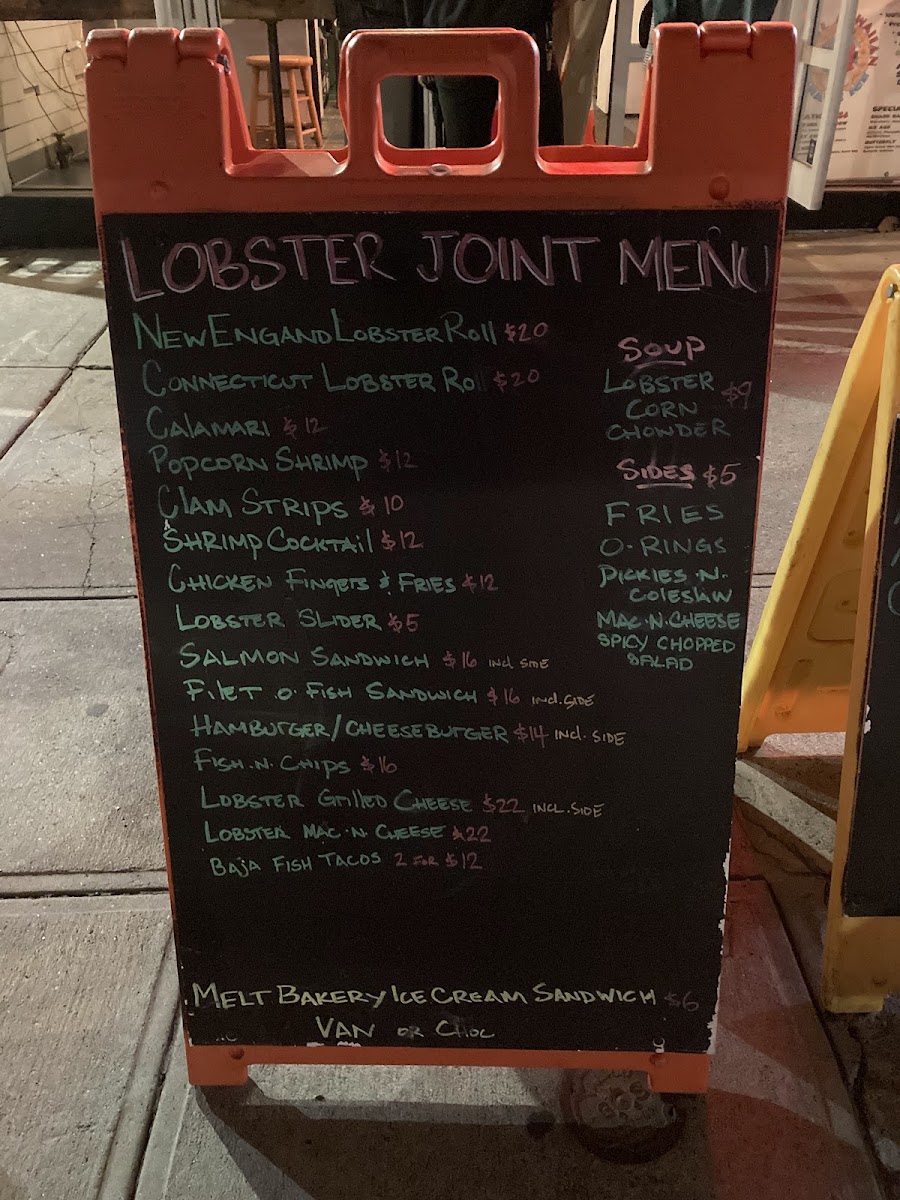 LOBSTER JOINT MENU
NEW ENGAND LOBSTER ROLL $20
CONNECTICUT LOBSTER ROLL $20
CALAMARI $12
POPCORN SHRIMP $12
CLAM STRIPS $10
SHRIMP COCKTAIL $12
CHICKEN FINGERS & FRIES $12
LOBSTER SLIDER $5
SALMON SANDWICH $16 INCL SIDE
FILET .O. FISH SANDWICH $16 INCL. SIDE
HAMBURGER/CHEESEBURGER $14 INCL. SIDE
FISH .N. CHIPS $16
LOBSTER GRILLED CHEESE $22 INCL. SIDE
LOBSTER MAC .N CHEESE $22
BAJA FISH TACOS 2 FOR $12
SOUP
LOBSTER $9
CORN
CHOWDER
SIDES $5
FRIES
O-RINGS
PICKIES .N.
COLESLAW
MAC.N.CHEESE
SPICY CHOPPED
SALAD
MELT BAKERY ICE CREAM SANDWICH $6
VAN OR CHOC
SPECIAL